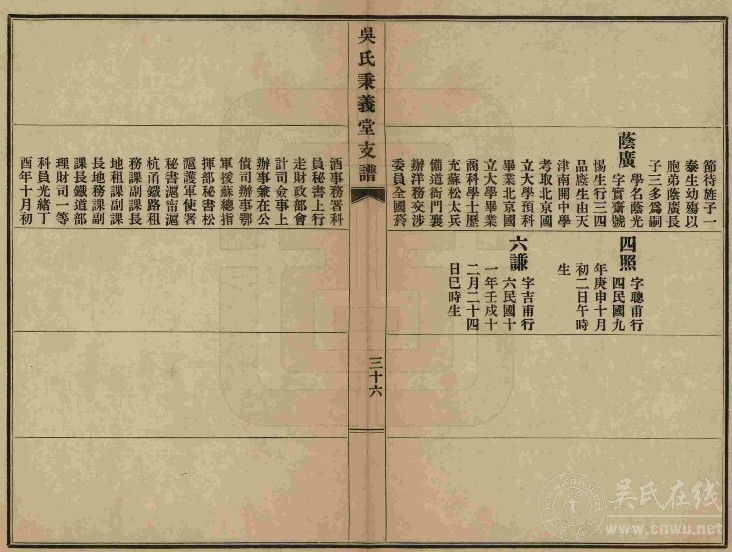 節待旌子一
泰生幼殤以
胞弟蔭廣長
子三多爲嗣
蔭廣
學名蔭光
字實齋號
惕生行三四
品廕生由天
津南開中學
考取北京國
立大學預科
畢業北京國
立大學畢業
商科學士歷
充蘇松太兵
備道衙門襄
辦洋務交涉
委員全國菸
四照
字聰甫行
四民國九
年庚申十月
初二日午時
生
六謙
字吉甫行
六民國十
一年壬戌十
二月二十四
日巳時生
吳氏秉義堂支譜
三十六
酒事務署科
員秘書上行
走財政部會
計司僉事上
辦事兼在公
債司辦事鄂
軍援蘇總指
揮部秘書松
滬護軍使署
秘書滬甯滬
杭甬鐵路租
務課副課長
地租課副課
長地務課副
課長鐵道部
理財司一等
科員光緒丁
酉年十月初
吴氏在线
www.cnwu.net